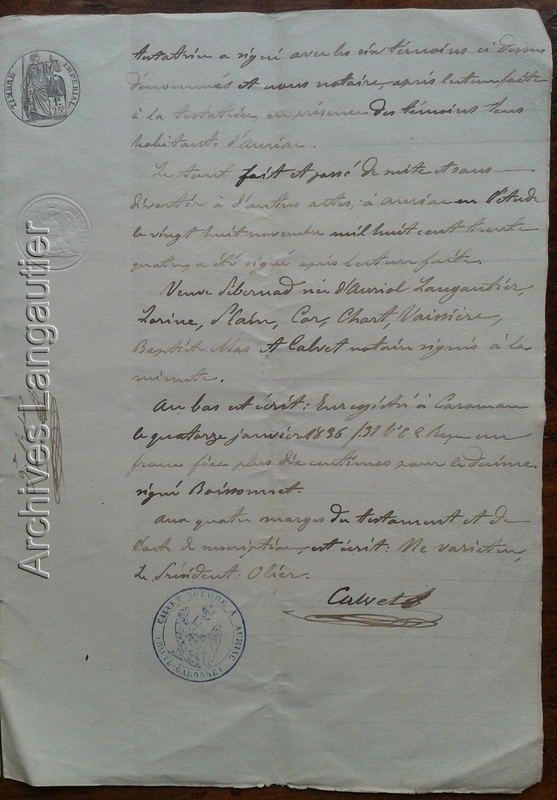 TIMBRE IMPERIAL
testatrice a signé avec les six témoins ci dessus
dénommés et nous notaire, après lecture faite
à la testatrice, en présence des témoins tous
habitants d'Auriac.
Le tout fait et passé de suite et sans
divertir à d'autres actes, à Auriac en l'étude
le vingt huit novembre mil huit cent trente
quatre, a été signé après lecture faite.
Veuve née d'Auriol Langautier,
Lorine, Car, Chart, Vaissière,
Baptiste Mas et Calvet notaire signés à la
minute.
Au bas est écrit: Enregistré à Caraman
le quatorze janvier 1836 Reçu un
franc fixe plus dix centimes pour le décime.
signé Boissonnet.
aux quatre marges du testament et de
l'acte de suscription, est écrit: Ne varietur,
Le Président: Olier.
Calvet
CALVET NOTAIRE A AURIAC
HTE GARONNE
Archives Langautier